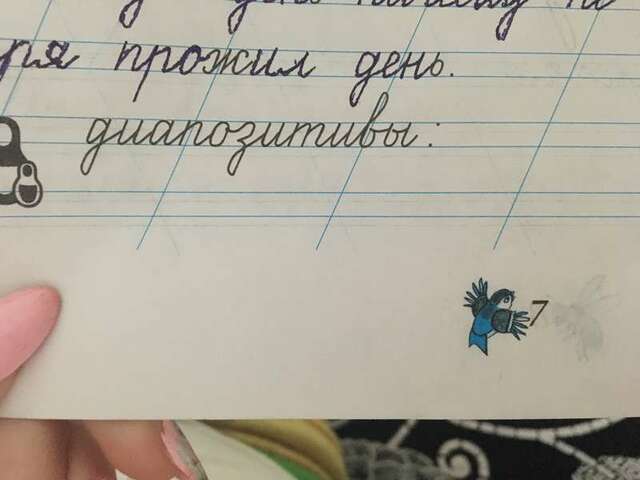 ря прожил день.
диапозитивы:
7